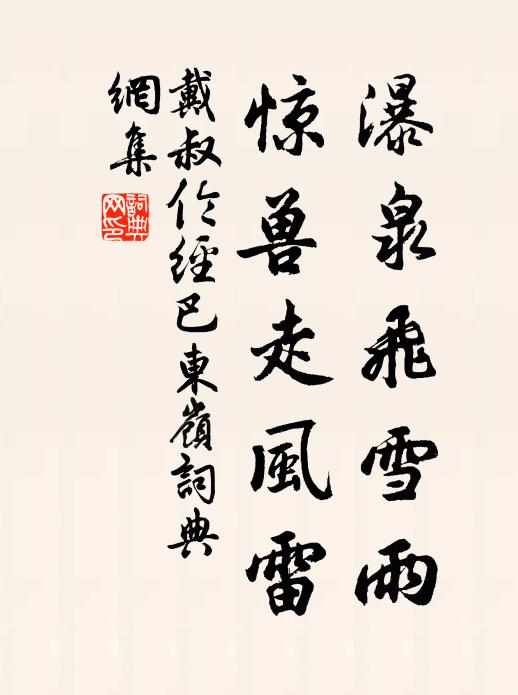 瀑泉飛雪雨
惊兽走風雷
戴叔伦經巴東嶺詞典
網集
詞典
网印